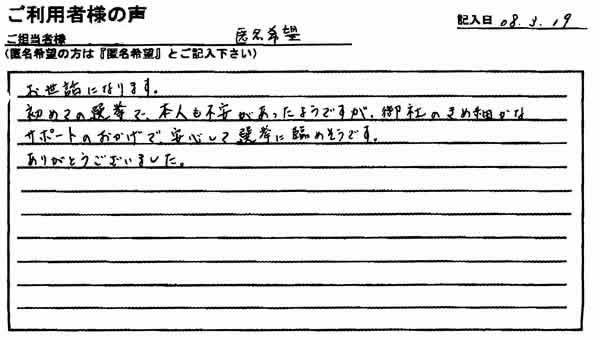 ご利用者様の声
記入日 08.3.19
ご担当者様 匿名希望
(匿名希望の方は『匿名希望』とご記入下さい)
お世話になります。
初めての選挙で、本人も不安があったようですが、御社のきめ細かな
サポートのおかげで、安心して選挙に臨めそうです。
ありがとうございました。